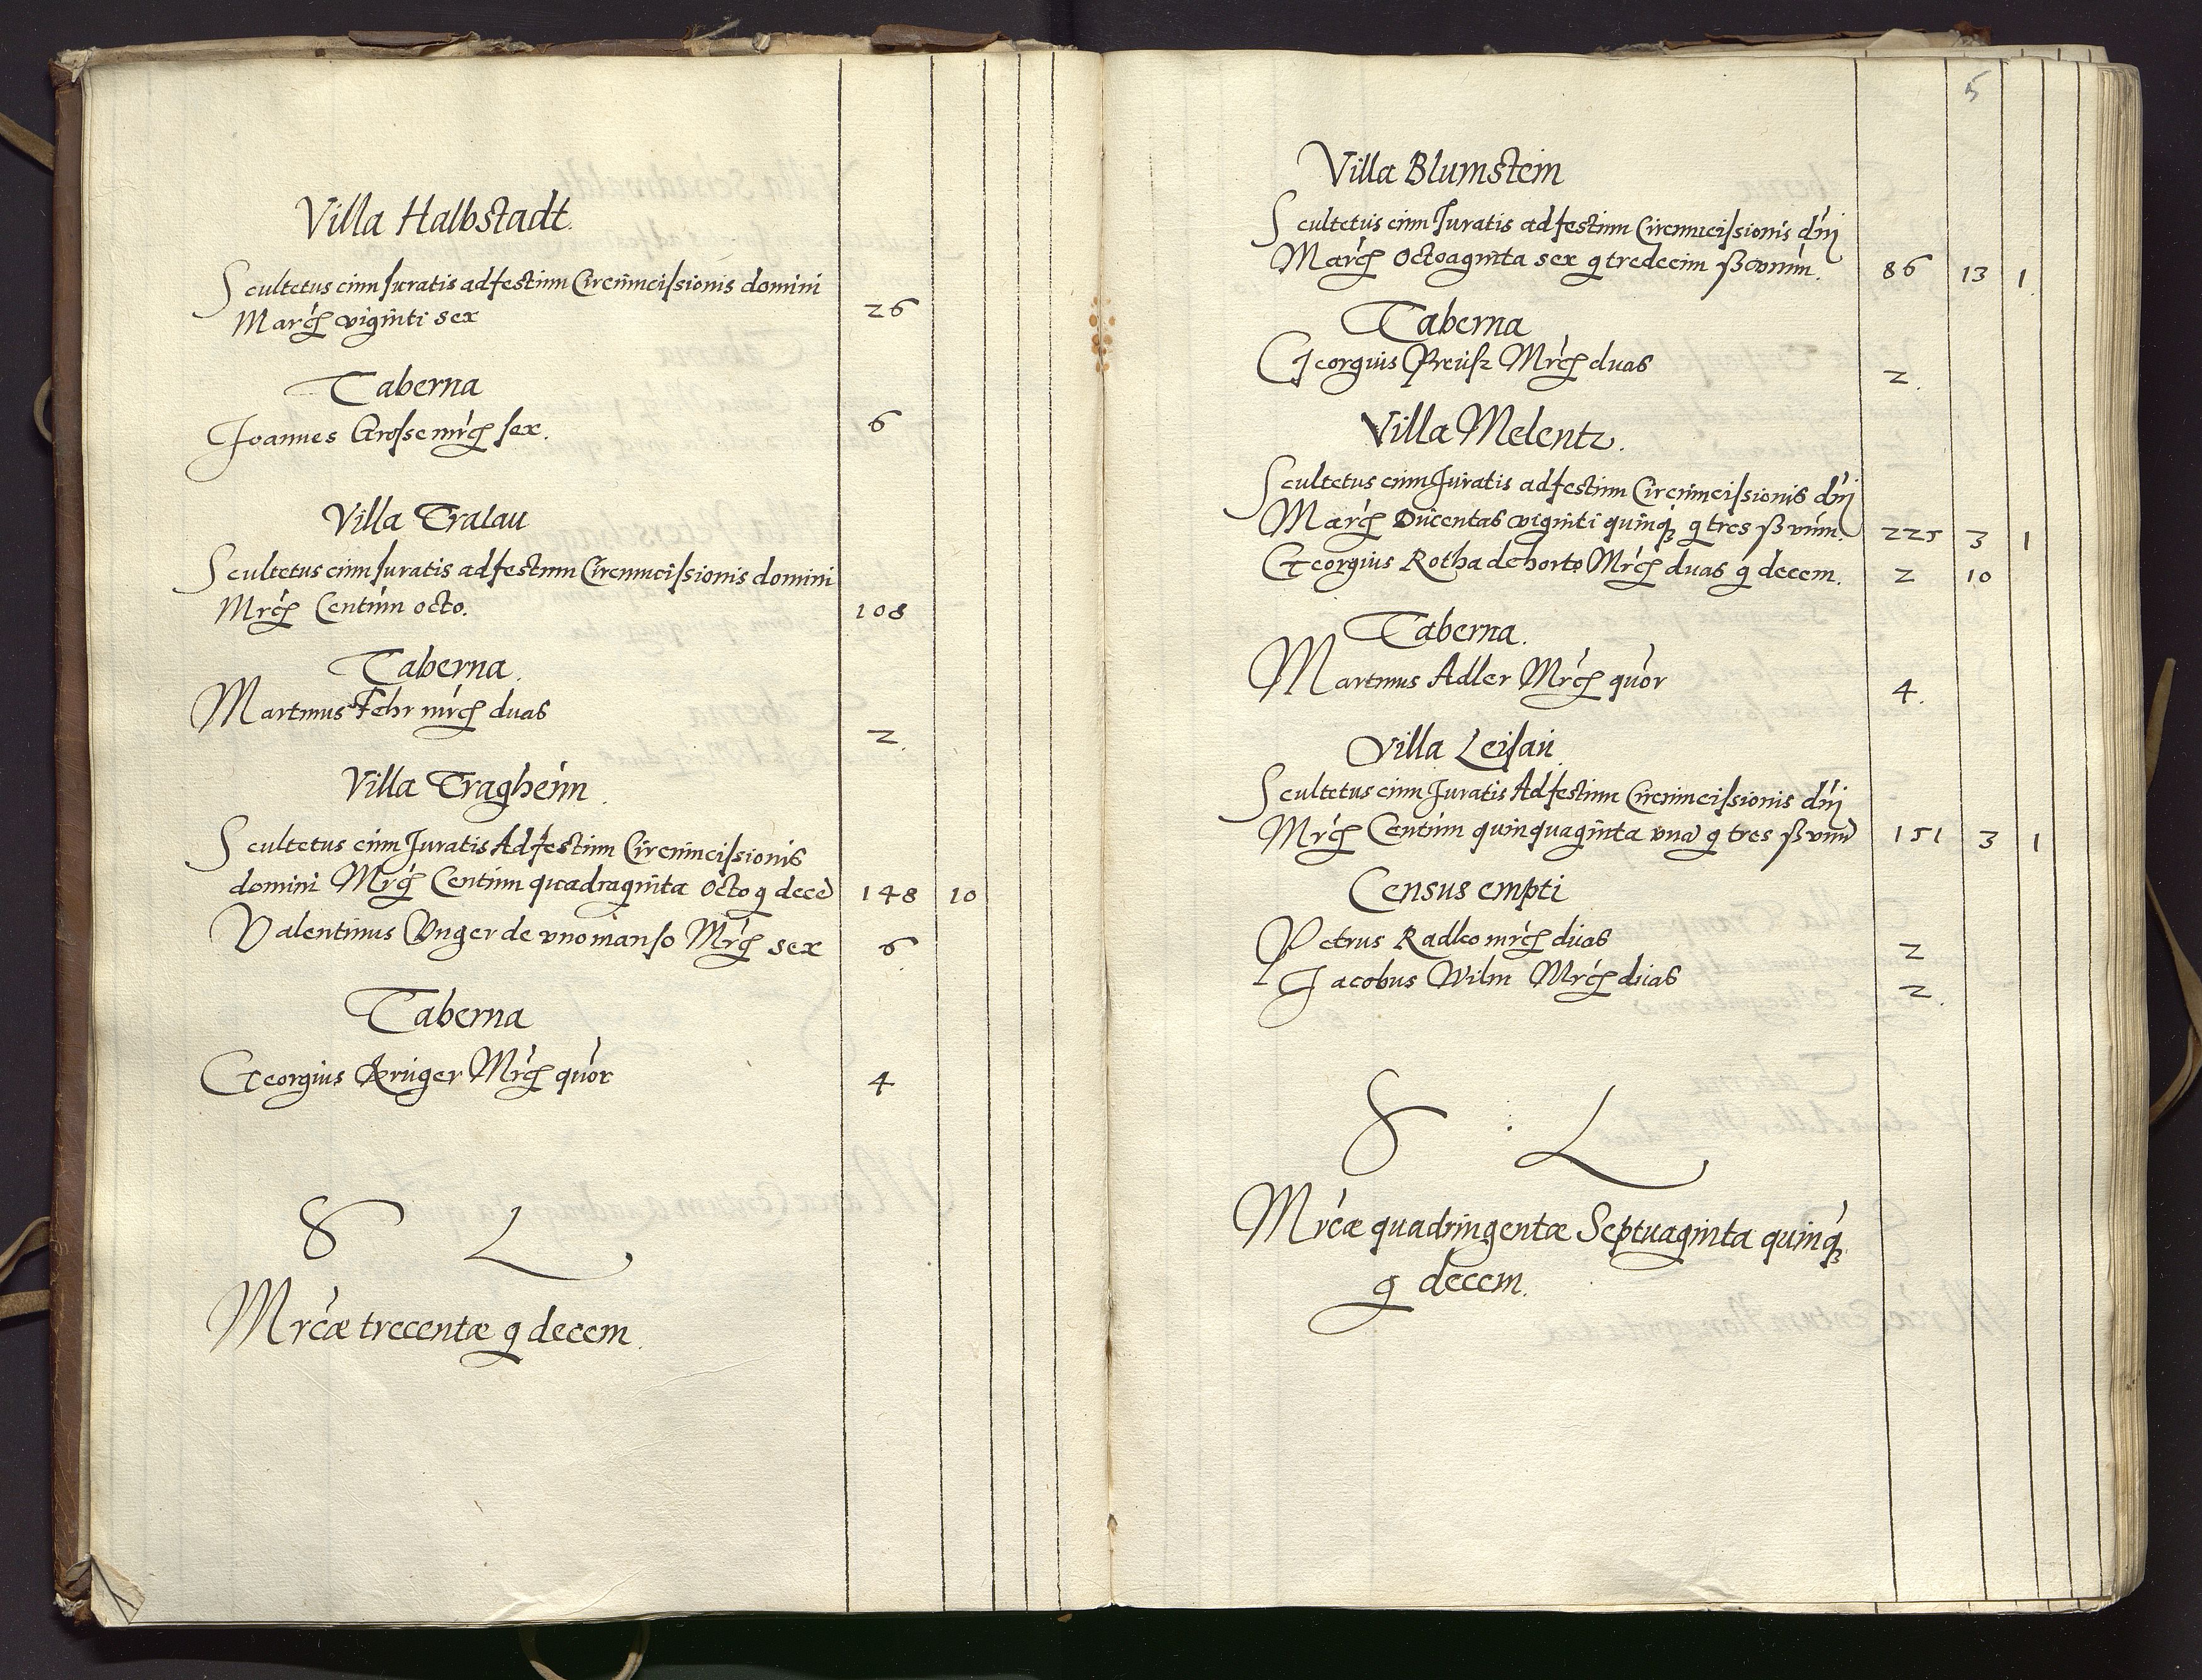 Villa Halbstadt.
Scultetus cum Iuratis ad festum Circumcisionis domini
Marcę viginti sex 26
Taberna
Ioannes Grosse mrcę sex. 6
Villa Tralau
Scultetus cum Iuratis ad festum Circumcisionis domini
Mrcę Centum octo. 108
Taberna.
Martinus Fehr mrcę duas
2.
Villa Tragheim.
Scultetus cum Iuratis Ad festum Circumcisionis
domini Mrcę Centum quadraginta Octo g decē 148 10
Valentinus Unger de uno manso Mrcę sex 6.
Taberna
Georgius Krüger Mrcę quor 4
S L
Mrcæ trecentæ g decem.
5
Villa Blumstein
Scultetus cum Iuratis ad festum Circumcisionis dnj
Marcę Octoaginta sex g tredecim ß unum. 86 13 1.
Taberna
Georgius Preuss Mrcę duas 2.
Villa Melentz.
Scultetus cum Iuratis ad festum Circumcisionis dnj
Marcę Ducentas viginti quinq g tres ß unum. 225 3 1
Georgius Rotha de horto Mrcę duas g decem. 2 10
Taberna.
Martinus Adler Mrcę quor 4.
Villa Leisau.
Scultetus cum Iuratis Ad festum Circumcisionis dnj
Mrcę Centum quinquaginta una g tres ß unū 151 3 1
Census empti
Petrus Radko mrcę duas 2
Jacobus Wilm Mrcę duas 2.
S : L
Mrcæ quadringentæ Septuaginta quinq
g decem.